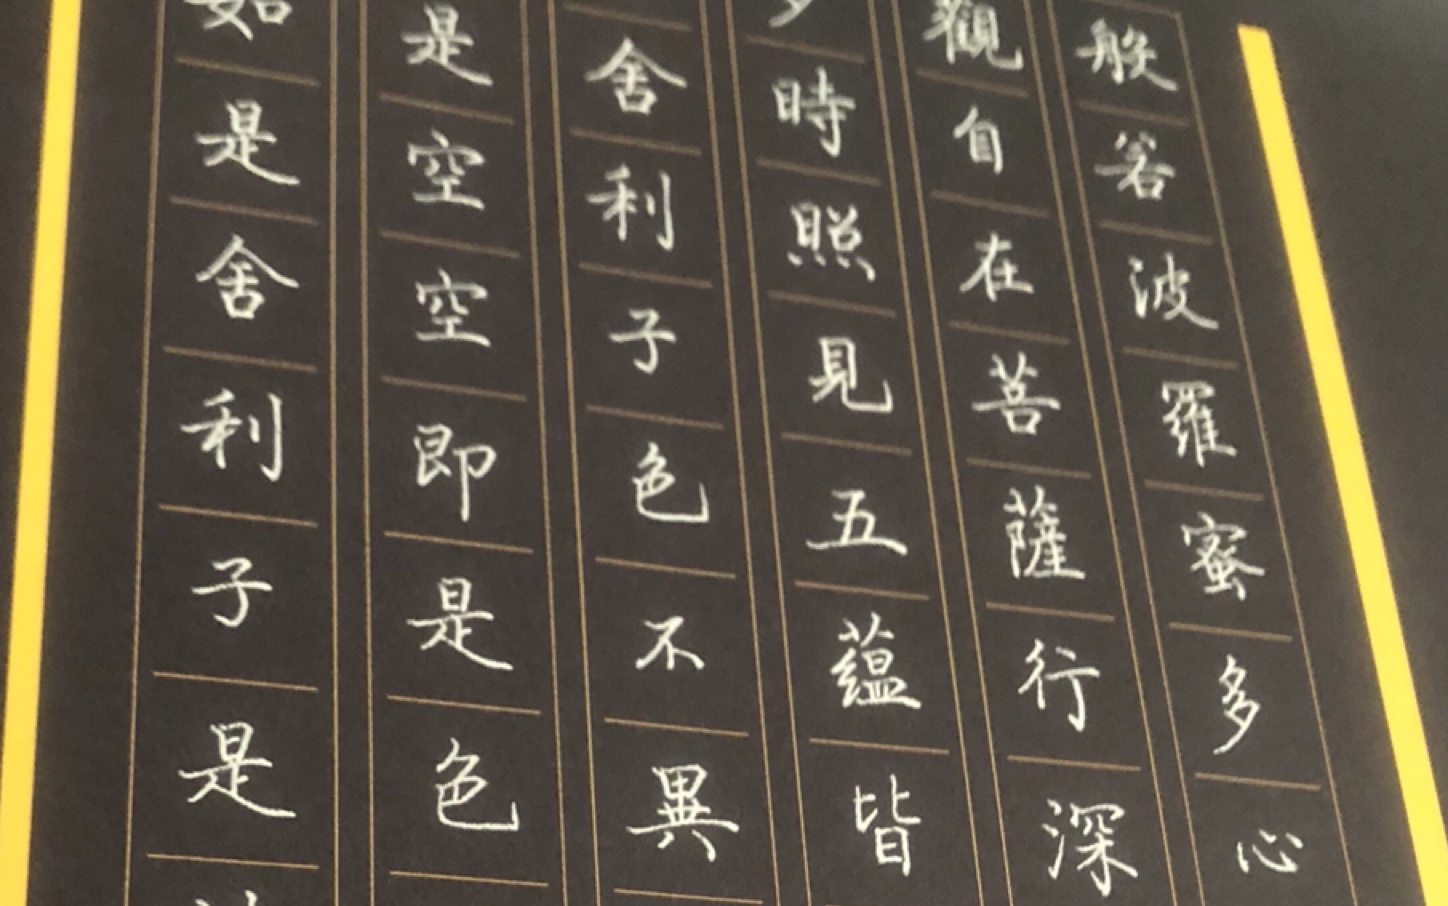 般若波羅蜜多心
觀自在菩薩行深
多時照見五蘊皆
舍利子色不異
是空空即是色
如是舍利子是